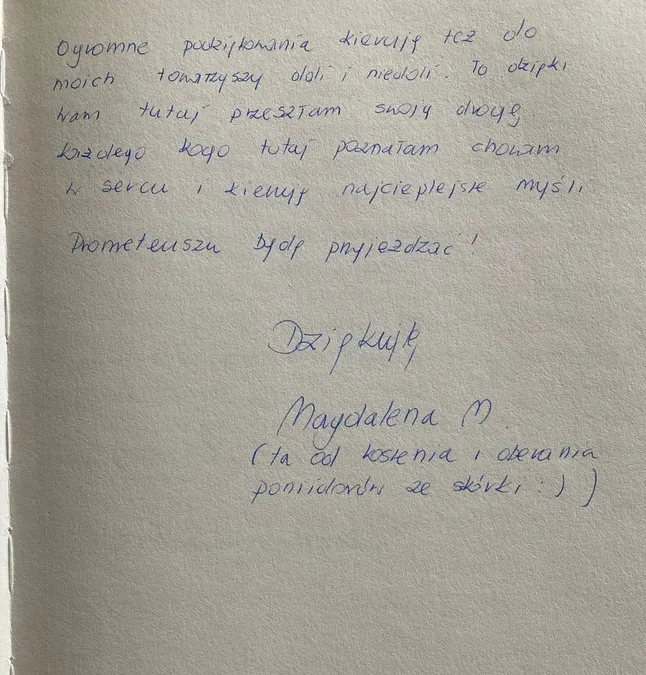 Ogromne podziękowania kieruję też do
moich towarzyszy doli i niedoli. To dzięki
Wam tutaj przeszłam swoją drogę.
Każdego kogo tutaj poznałam chowam
w sercu i kieruję najcieplejsze myśli,
Prometeuszu będę przyjeżdzać!
Dziękuję
Magdalena M.
(ta od koszenia i obierania
pomidorów ze skórki :) )